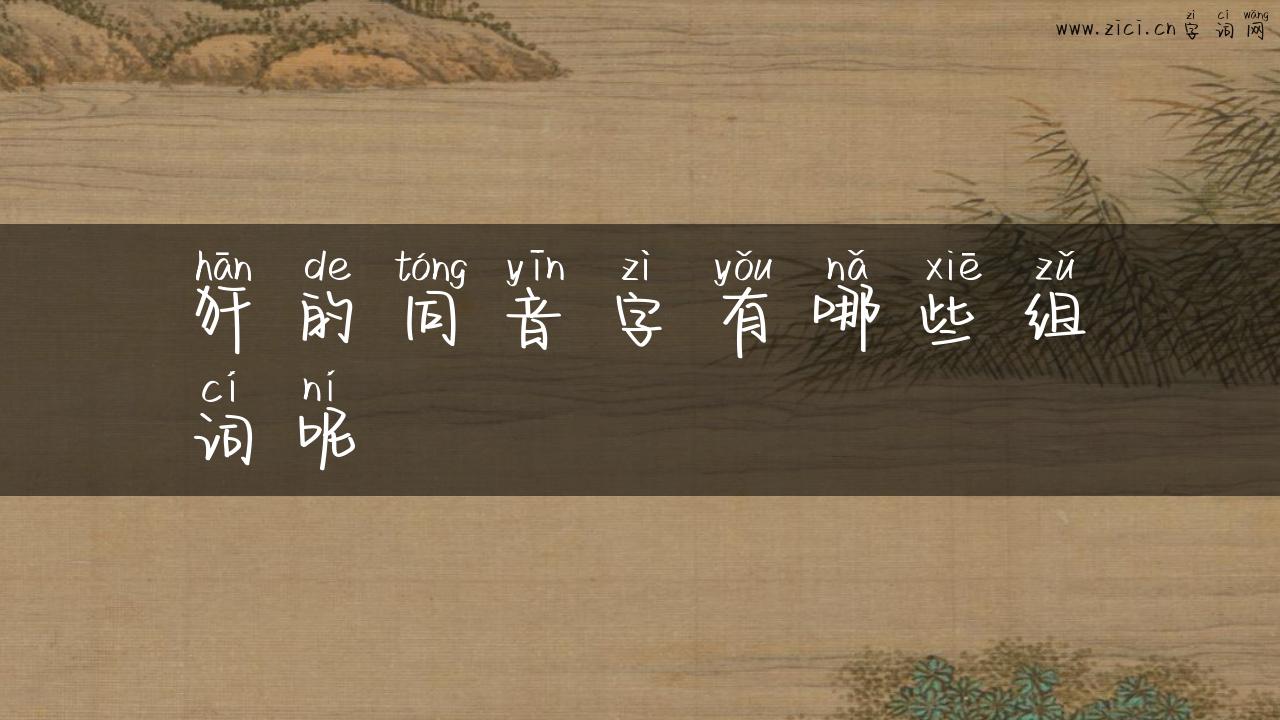 www.zici.cn zì cí wǎng
字词网
hān de tóng yīn zì yǒu nǎ xiē zǔ
犴的同音字有哪些组
cí ní
词呢